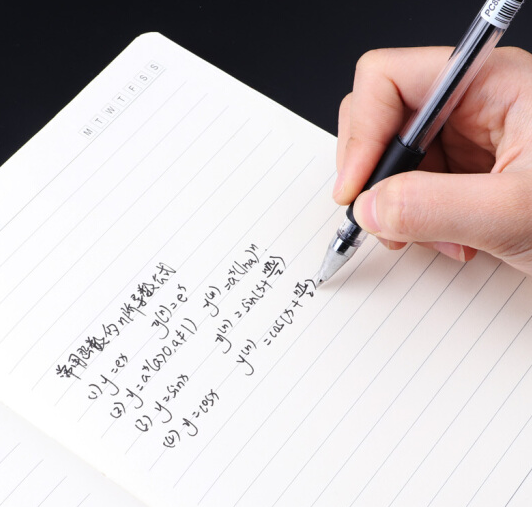 M T W T F S S
常用函数的n阶导数公式
(1) y=eˣ y⁽ⁿ⁾=eˣ
(2) y=aˣ(a>0.a≠1) y⁽ⁿ⁾=aˣ(lna)ⁿ
(3) y=sinx y⁽ⁿ⁾=sin(x+nπ/2)
(4) y=cosx y⁽ⁿ⁾=cos(x+nπ/2)